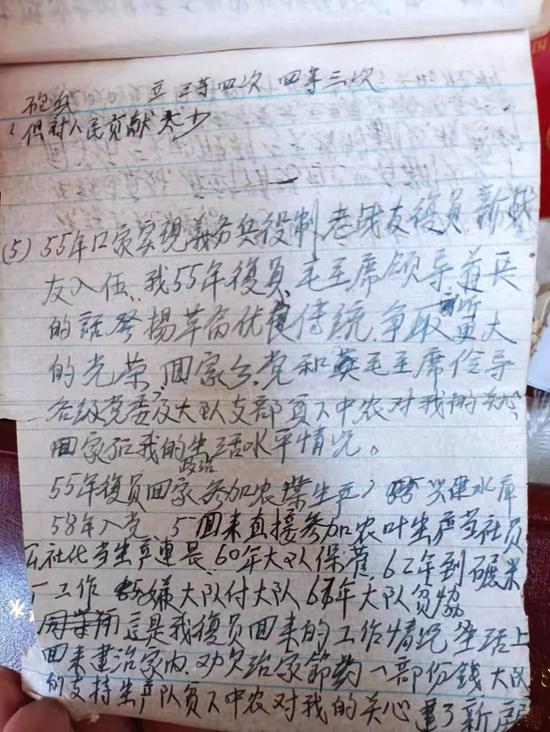 砲兵 三等四次 四等三次
但对人民贡献太少
(5) 55年口家实現義务兵役制 老战友復員 新战
友入伍、我55年復員、毛主席领导、首長
的話發揚革命优良傳統、争取更大
的光荣、回家后、党和毛主席领导
各级党委及大队支部貧下中农对我的关心
回家后我的政治生活水平情况。
55年復員回家参加农業生产 兴建水库
58年入党 回来直接参加农叶生产当社员
公社化当生产連長、60年大队保管、62年到碾米
厂工作 兼大队付大队 6年大队貧协
這是我復員回来的工作情况 生活上
回来建治家内、劝欠治家節約一部份錢 大队
的支持生产队貧下中农对我的关心 建了新房